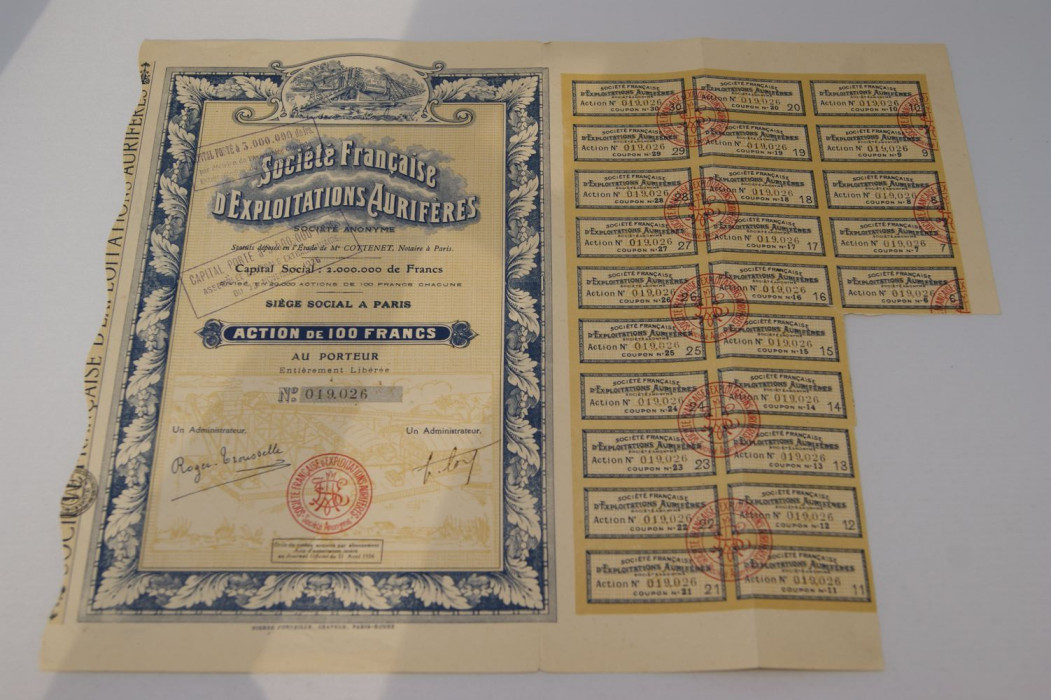 CAPITAL PORTÉ À 3.000.000
Société Française
D'EXPLOITATIONS AURIFÈRES
SOCIÉTÉ ANONYME
Statuts déposés en l'Étude de Me COTTENET, Notaire à Paris.
CAPITAL PORTÉ
Capital Social : 2.000.000 de Francs
DIVISÉ EN 20.000 ACTIONS DE 100 FRANCS CHACUNE
SIÈGE SOCIAL A PARIS
ACTION DE 100 FRANCS
AU PORTEUR
Entièrement Libérée
No 019,026
Un Administrateur,
Un Administrateur,
Roger Trousselle
SOCIÉTÉ FRANÇAISE D'EXPLOITATIONS AURIFÈRES
Société Anonyme
SOCIÉTÉ FRANÇAISE
D'EXPLOITATIONS AURIFÈRES
SOCIÉTÉ ANONYME
Action No 019,026 30
COUPON No 30
SOCIÉTÉ FRANÇAISE
D'EXPLOITATIONS AURIFÈRES
SOCIÉTÉ ANONYME
Action No 019,026 20
COUPON No 20
SOCIÉTÉ FRANÇAISE
D'EXPLOITATIONS AURIFÈRES
SOCIÉTÉ ANONYME
Action No 019,026 10
COUPON No 10
SOCIÉTÉ FRANÇAISE
D'EXPLOITATIONS AURIFÈRES
SOCIÉTÉ ANONYME
Action No 019,026 29
COUPON No 29
SOCIÉTÉ FRANÇAISE
D'EXPLOITATIONS AURIFÈRES
SOCIÉTÉ ANONYME
Action No 019,026 19
COUPON No 19
SOCIÉTÉ FRANÇAISE
D'EXPLOITATIONS AURIFÈRES
SOCIÉTÉ ANONYME
Action No 019,026 9
COUPON No 9
SOCIÉTÉ FRANÇAISE
D'EXPLOITATIONS AURIFÈRES
SOCIÉTÉ ANONYME
Action No 019,026 28
COUPON No 28
SOCIÉTÉ FRANÇAISE
D'EXPLOITATIONS AURIFÈRES
SOCIÉTÉ ANONYME
Action No 019,026 18
COUPON No 18
SOCIÉTÉ FRANÇAISE
D'EXPLOITATIONS AURIFÈRES
SOCIÉTÉ ANONYME
Action No 019,026 8
COUPON No 8
SOCIÉTÉ FRANÇAISE
D'EXPLOITATIONS AURIFÈRES
SOCIÉTÉ ANONYME
Action No 019,026 27
COUPON No 27
SOCIÉTÉ FRANÇAISE
D'EXPLOITATIONS AURIFÈRES
SOCIÉTÉ ANONYME
Action No 019,026 17
COUPON No 17
SOCIÉTÉ FRANÇAISE
D'EXPLOITATIONS AURIFÈRES
SOCIÉTÉ ANONYME
Action No 019,026 7
COUPON No 7
SOCIÉTÉ FRANÇAISE
D'EXPLOITATIONS AURIFÈRES
SOCIÉTÉ ANONYME
Action No 019,026 26
COUPON No 26
SOCIÉTÉ FRANÇAISE
D'EXPLOITATIONS AURIFÈRES
SOCIÉTÉ ANONYME
Action No 019,026 16
COUPON No 16
SOCIÉTÉ FRANÇAISE
D'EXPLOITATIONS AURIFÈRES
SOCIÉTÉ ANONYME
Action No 019,026 6
COUPON No 6
SOCIÉTÉ FRANÇAISE
D'EXPLOITATIONS AURIFÈRES
SOCIÉTÉ ANONYME
Action No 019,026 25
COUPON No 25
SOCIÉTÉ FRANÇAISE
D'EXPLOITATIONS AURIFÈRES
SOCIÉTÉ ANONYME
Action No 019,026 15
COUPON No 15
SOCIÉTÉ FRANÇAISE
D'EXPLOITATIONS AURIFÈRES
SOCIÉTÉ ANONYME
Action No 019,026 24
COUPON No 24
SOCIÉTÉ FRANÇAISE
D'EXPLOITATIONS AURIFÈRES
SOCIÉTÉ ANONYME
Action No 019,026 14
COUPON No 14
SOCIÉTÉ FRANÇAISE
D'EXPLOITATIONS AURIFÈRES
SOCIÉTÉ ANONYME
Action No 019,026 23
COUPON No 23
SOCIÉTÉ FRANÇAISE
D'EXPLOITATIONS AURIFÈRES
SOCIÉTÉ ANONYME
Action No 019,026 13
COUPON No 13
SOCIÉTÉ FRANÇAISE
D'EXPLOITATIONS AURIFÈRES
SOCIÉTÉ ANONYME
Action No 019,026 22
COUPON No 22
SOCIÉTÉ FRANÇAISE
D'EXPLOITATIONS AURIFÈRES
SOCIÉTÉ ANONYME
Action No 019,026 12
COUPON No 12
SOCIÉTÉ FRANÇAISE
D'EXPLOITATIONS AURIFÈRES
SOCIÉTÉ ANONYME
Action No 019,026 21
COUPON No 21
SOCIÉTÉ FRANÇAISE
D'EXPLOITATIONS AURIFÈRES
SOCIÉTÉ ANONYME
Action No 019,026 11
COUPON No 11